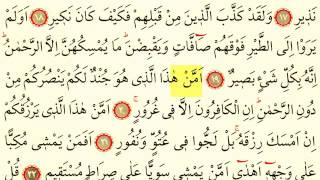 نَذٖيرِ ﴿١٧﴾ وَلَقَدْ كَذَّبَ الَّذٖينَ مِنْ قَبْلِهِمْ فَكَيْفَ كَانَ نَكٖيرِ ﴿١٨﴾ اَوَلَمْ
يَرَوْا اِلَى الطَّيْرِ فَوْقَهُمْ صَٓافَّاتٍ وَيَقْبِضْنَ مَا يُمْسِكُهُنَّ اِلَّا الرَّحْمٰنُ
اِنَّهُ بِكُلِّ شَيْءٍ بَصٖيرٌ ﴿١٩﴾ اَمَّنْ هٰذَا الَّذٖى هُوَ جُنْدٌ لَكُمْ يَنْصُرُكُمْ مِنْ
دُونِ الرَّحْمٰنِ اِنِ الْكَافِرُونَ اِلَّا فٖى غُرُورٍ ﴿٢٠﴾ اَمَّنْ هٰذَا الَّذٖى يَرْزُقُكُمْ
اِنْ اَمْسَكَ رِزْقَهُ بَلْ لَجُّوا فٖى عُتُوٍّ وَنُفُورٍ ﴿٢١﴾ اَفَمَنْ يَمْشٖى مُكِبًّا
عَلٰى وَجْهِهٖ اَهْدٰٓى اَمَّنْ يَمْشٖى سَوِيًّا عَلٰى صِرَاطٍ مُسْتَقٖيمٍ ﴿٢٢﴾ قُلْ